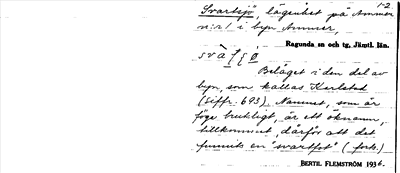 1-2
Svartsjö, lägenhet på Ammer
n:r 1 i byn Ammer,
Ragunda sn och tg, Jämtl. län.
Beläget i den del av
byn, som kallas Karlstad
(siffr. 693). Namnet, som är
föga brukligt, är ett öknamn,
tillkommet, därför att det
funnits en "svartfot" (fork.)
BERTIL FLEMSTRÖM 1936.